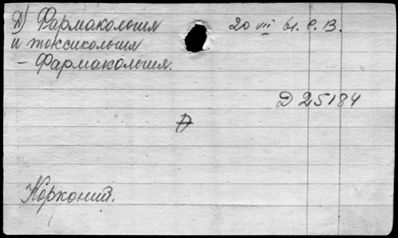 Д) Фармакология 20 VII 61. Р. В.
и токсикология
– Фармакология.
Д 25184
Д
Корконий.